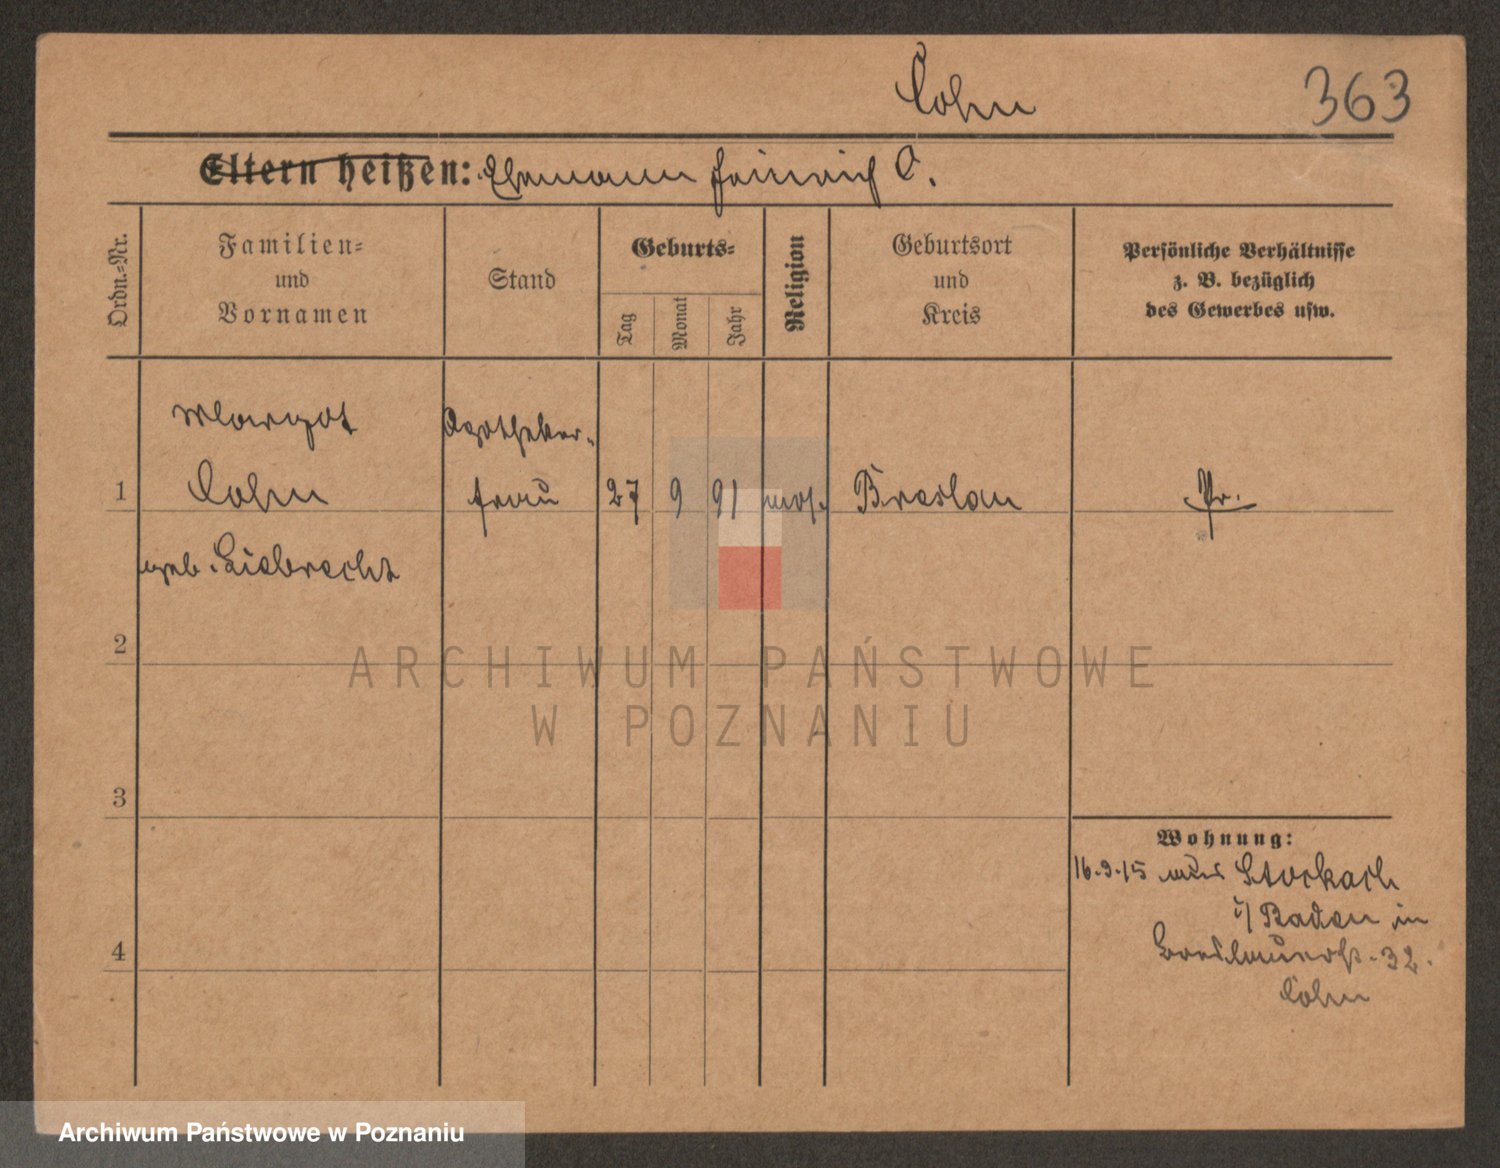 Cohn
363
Eltern heißen: Ehemann Heinrich C.
Ordn.=Nr.
Familien=
und
Vornamen
Stand
Geburts=
Tag
Monat
Jahr
Religion
Geburtsort
und
Kreis
Persönliche Verhältnisse
z. B. bezüglich
des Gewerbes usw.
Margot
Apotheker-
1
Cohn
frau
27
9
91
mos.
Breslau
Pr.
geb. Liebrecht
2
ARCHIWUM PAŃSTWOWE
W POZNANIU
3
Wohnung:
16.9.15 aus Stockach
i/Baden in
4
Breslauerstr. 32.
Cohn
Archiwum Państwowe w Poznaniu